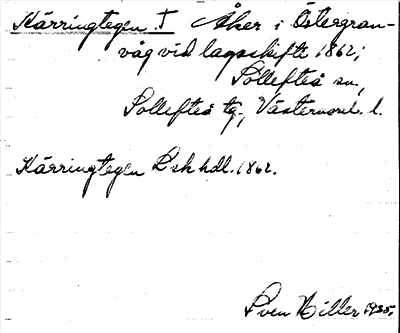 Kärringtegen. T Åker i Östergran-
våg vid lagaskifte 1862;
Sollefteå sn,
Sollefteå tg., Västernorrl. l.
Kärringtegen Lsk hdl. 1862.
Sven Hiller 1935.